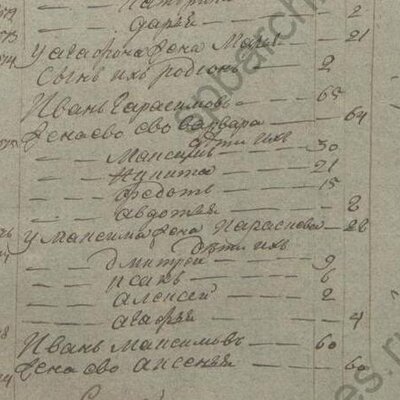 дарья — 2
у агафона жена Марья — 21
Сынъ ихъ родионъ — 2
Иванъ Гарасимовъ — 65
Жена ево варвара — 64
дети ихъ
Максимъ — 30
Никита — 21
федотъ — 15
авдотья — 8
у максима жена Парасковья — 28
дети ихъ
дмитрей — 9
исакъ — 6
алексей — 2
агафья — 4
Иванъ Максимовъ — 60
Жена ево аксенья — 60